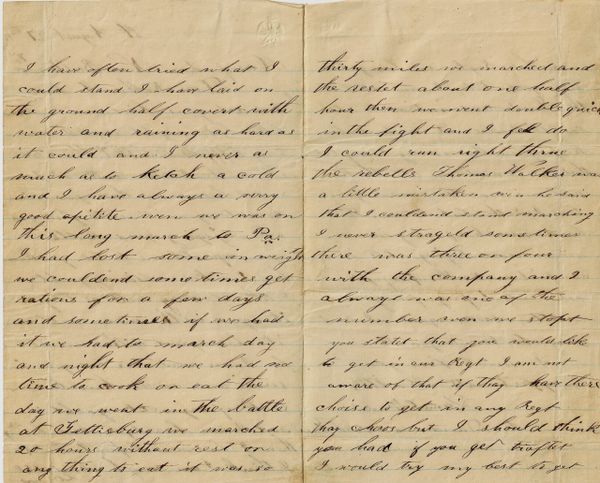 I have often tried what I
could stand I have laid on
the ground half covert with
water and raining as hard as
it could and I never as
much as to ketch a cold
and I have always a very
good apitite wen we was on
this long march to Pa.
I had lost some in weight
we couldend some times get
rations for a few days
and sometimes if we had
it we had to march day
and night that we had no
time to cook or eat the
day we went in the battle
at Gettieburg we marched
20 hours without rest or
any thing to eat it was so
thirty miles we marched and
the restet about one half
hour then we went double quick
in the fight and I felt do
I could run right threw
the rebells Thomas Walker was
a little mistaken wen he said
that I couldend stand marching
I never strageld sometimes
there was three or four
with the company and I
always was one of the
number wen we stopt
you statet that you would like
to get in our Regt I am not
aware of that if thay have there
choise to get in any Regt
thay choos but I should think
you had if you get draftet
I would try my best to get